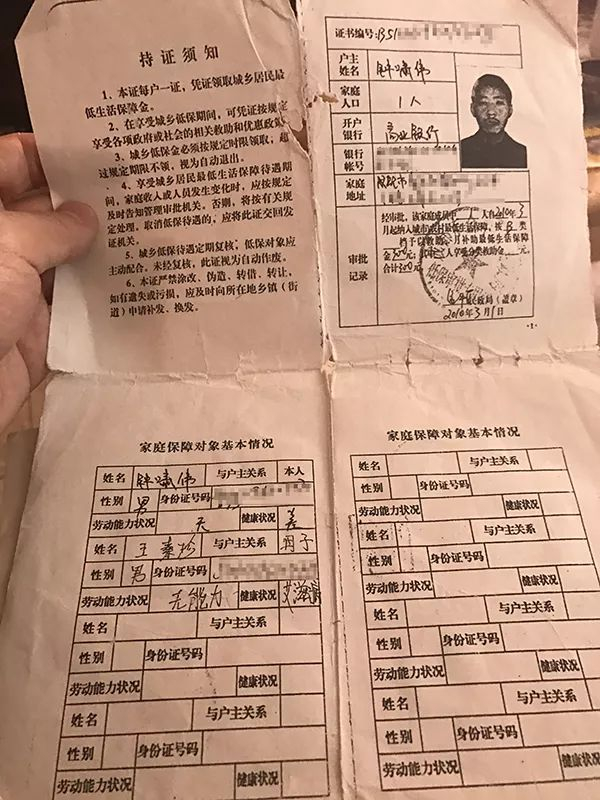 持证须知
1、本证每户一证，凭证领取城乡居民最
低生活保障金。
2、在享受城乡低保期间，可凭证按规定
享受各项政府或社会的相关救助和优惠政策。
3、城乡低保金必须按规定时限领取，超
过规定期限不领，视为自动退出。
4、享受城乡居民最低生活保障待遇期
间，家庭收入或人员发生变化时，应按规定
及时告知管理审批机关。否则，将按有关规
定处理，取消低保待遇的，应将此证交回发
证机关。
5、城乡低保待遇定期复核，低保对象应
主动配合。未经复核，此证视为自动作废。
6、本证严禁涂改、伪造、转借、转让，
如有遗失或污损，应及时向所在地乡镇（街
道）申请补发、换发。
证书编号:
户主
姓名
家庭
人口 1人
开户
银行 商业银行
银行
帐号
家庭
地址
审批
记录
经审批，该家庭成员中 1 人自2010年3
月起纳入城市农村最低生活保障，按 B 类
月补助最低生活保障
金300元，
人享受分类救助金 元，
合计300元。
民政局（盖章）
2010年3月1日
·1·
家庭保障对象基本情况
姓名 与户主关系 本人
性别 男 身份证号码
劳动能力状况 健康状况 差
姓名 王 与户主关系
性别 男 身份证号码
劳动能力状况 无能力 健康状况
姓名 与户主关系
性别 身份证号码
劳动能力状况 健康状况
姓名 与户主关系
性别 身份证号码
劳动能力状况 健康状况
家庭保障对象基本情况
姓名 与户主关系
性别 身份证号码
劳动能力状况 健康状况
姓名 与户主关系
性别 身份证号码
劳动能力状况 健康状况
姓名 与户主关系
性别 身份证号码
劳动能力状况 健康状况
姓名 与户主关系
性别 身份证号码
劳动能力状况 健康状况